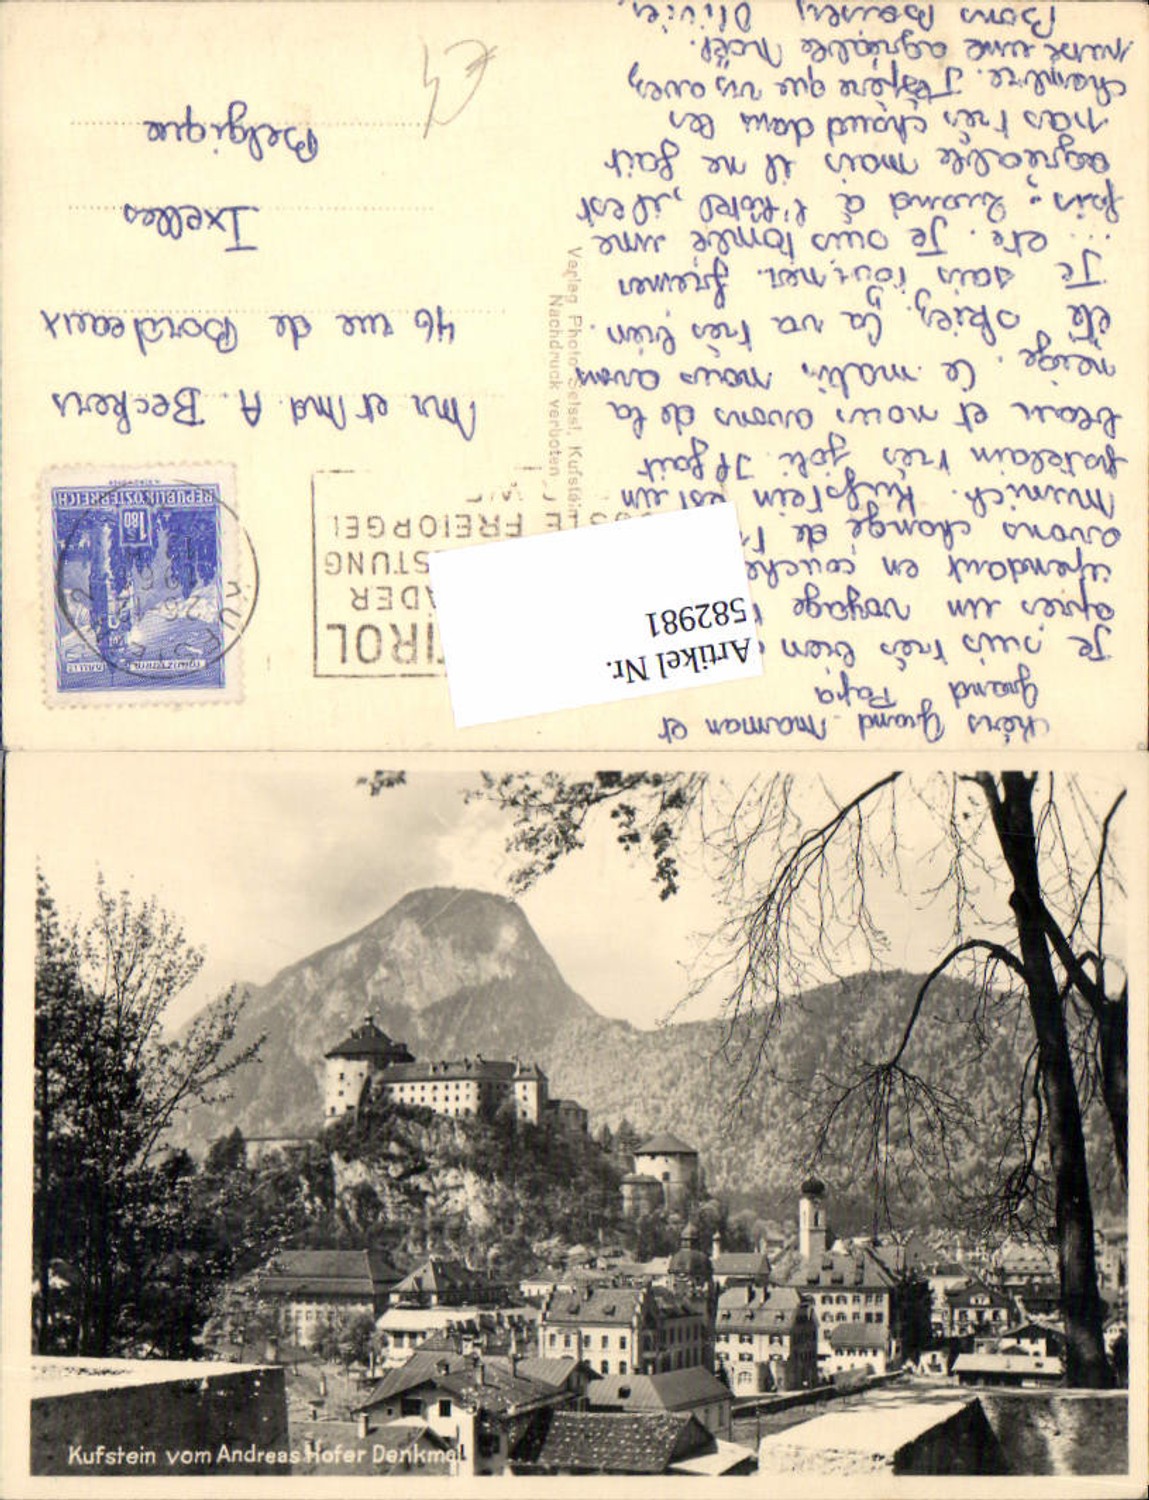 Chers Grand Maman et
Grand Papa
Je suis très bien
après un voyage
épendant en couche
avons change de
Munich. Kufstein est un
patelain très joli. Il fait
beau et nous avons de la
neige. Ce matin nous avons
été skier. Ca va très bien.
Je sais tourner, freiner
etc. Je suis tombée une
fois; Quand à l'hôtel, il est
agréable mais il ne fait
pas très chaud dans les
chambre. J'espère que vs avez
une agréable Noël.
Bons Baisers Olivier
Artikel Nr.
582981
TIROL
ÄDER
STUNG
FREIORGEL
REPUBLIK ÖSTERREICH
S 1.80
KUFSTEIN
26.12.
Verlag Photo Seissl, Kufstein
Nachdruck verboten
Mr et Md A. Beckers
46 rue de Bordeaux
Ixelles
Belgique
€4
Kufstein vom Andreas Hofer Denkmal